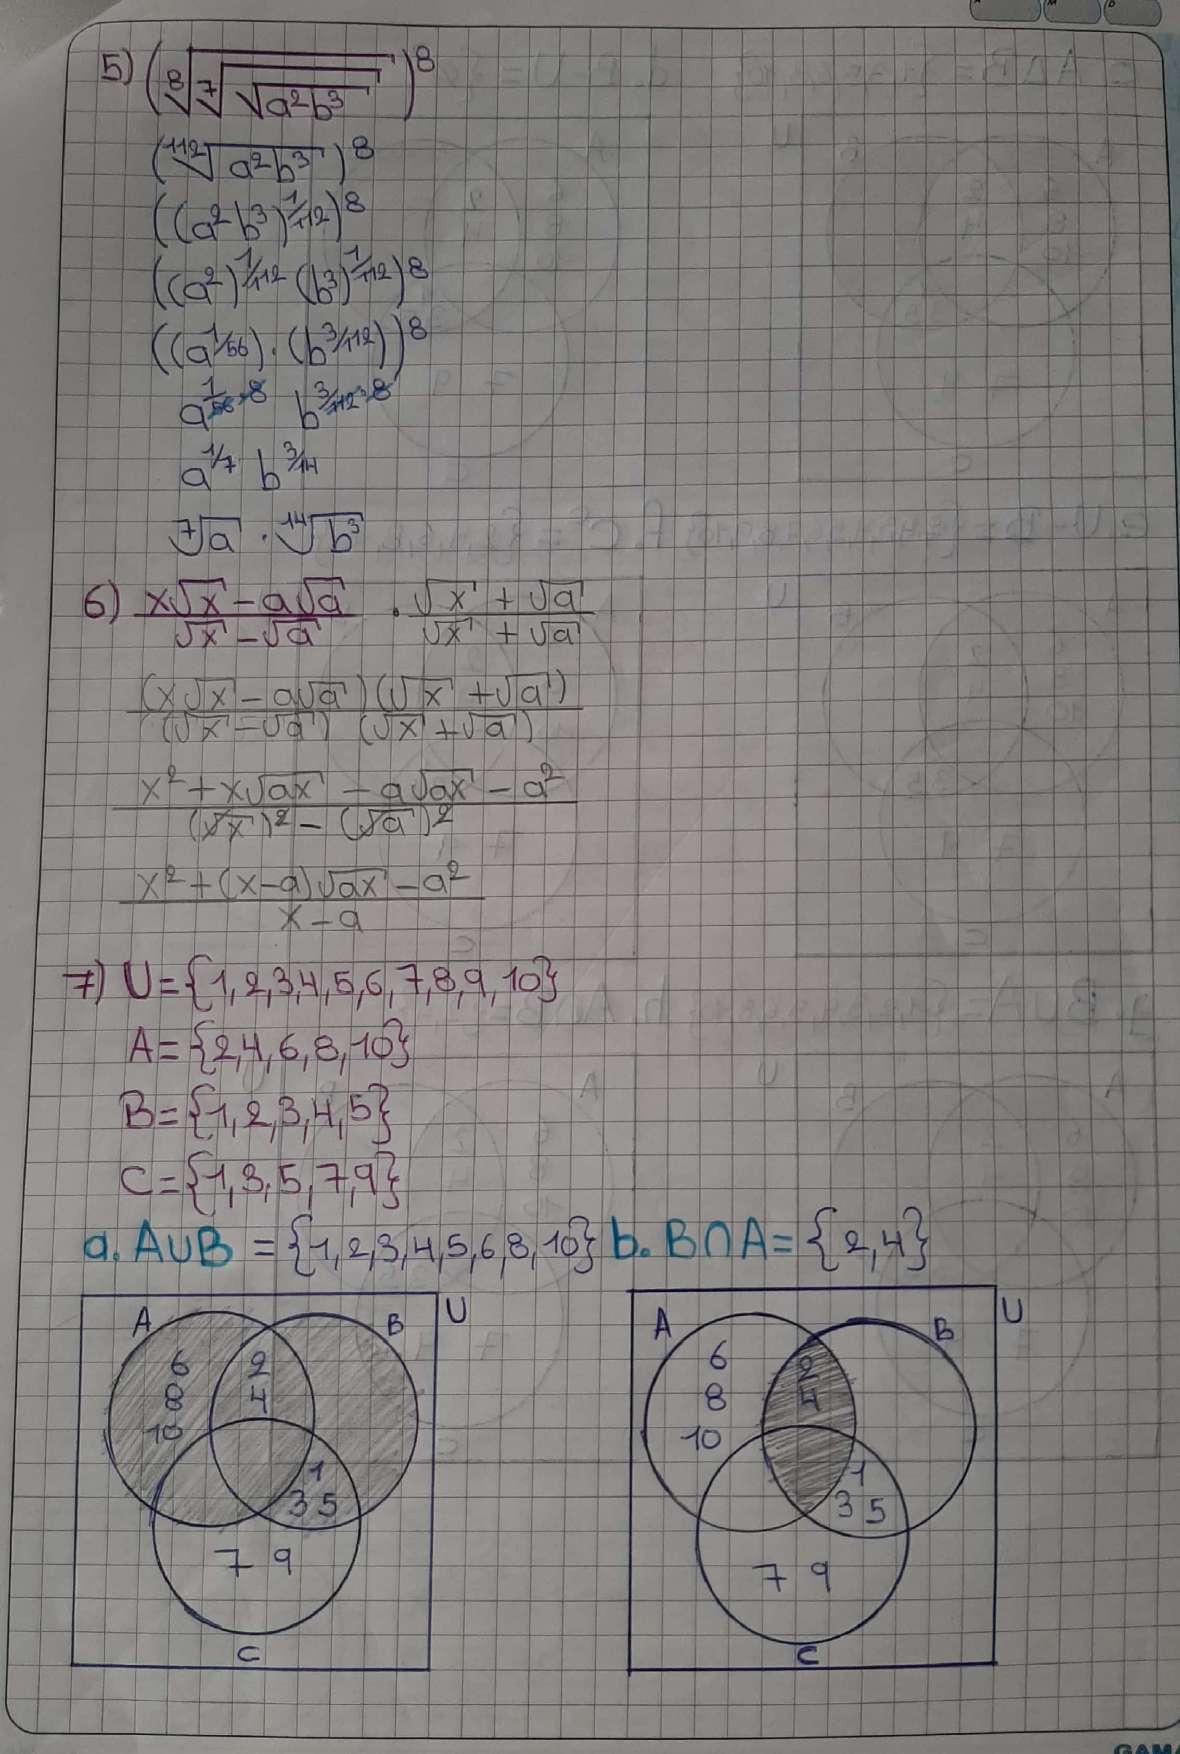 5) (⁸√⁷√√a²b³)⁸
(¹¹²√a²b³)⁸
((a²b³)^1/112)⁸
((a²)^1/112 (b³)^1/112)⁸
((a^1/56)·(b^3/112))⁸
a^1/56·8 b^3/112·8
a^1/7 b^3/14
⁷√a · ¹⁴√b³
6) x√x - a√a / √x - √a · √x + √a / √x + √a
(x√x - a√a)(√x + √a) / (√x - √a) (√x + √a)
x² + x√ax - a√ax - a² / (√x)² - (√a)²
x² + (x-a)√ax - a² / x - a
7) U={1,2,3,4,5,6,7,8,9,10}
A={2,4,6,8,10}
B={1,2,3,4,5}
C={1,3,5,7,9}
a. A∪B = {1,2,3,4,5,6,8,10} b. B∩A = {2,4}
A B U
6 2
8 4
10
1
3 5
7 9
C
A B U
6 2
8 4
10
1
3 5
7 9
C